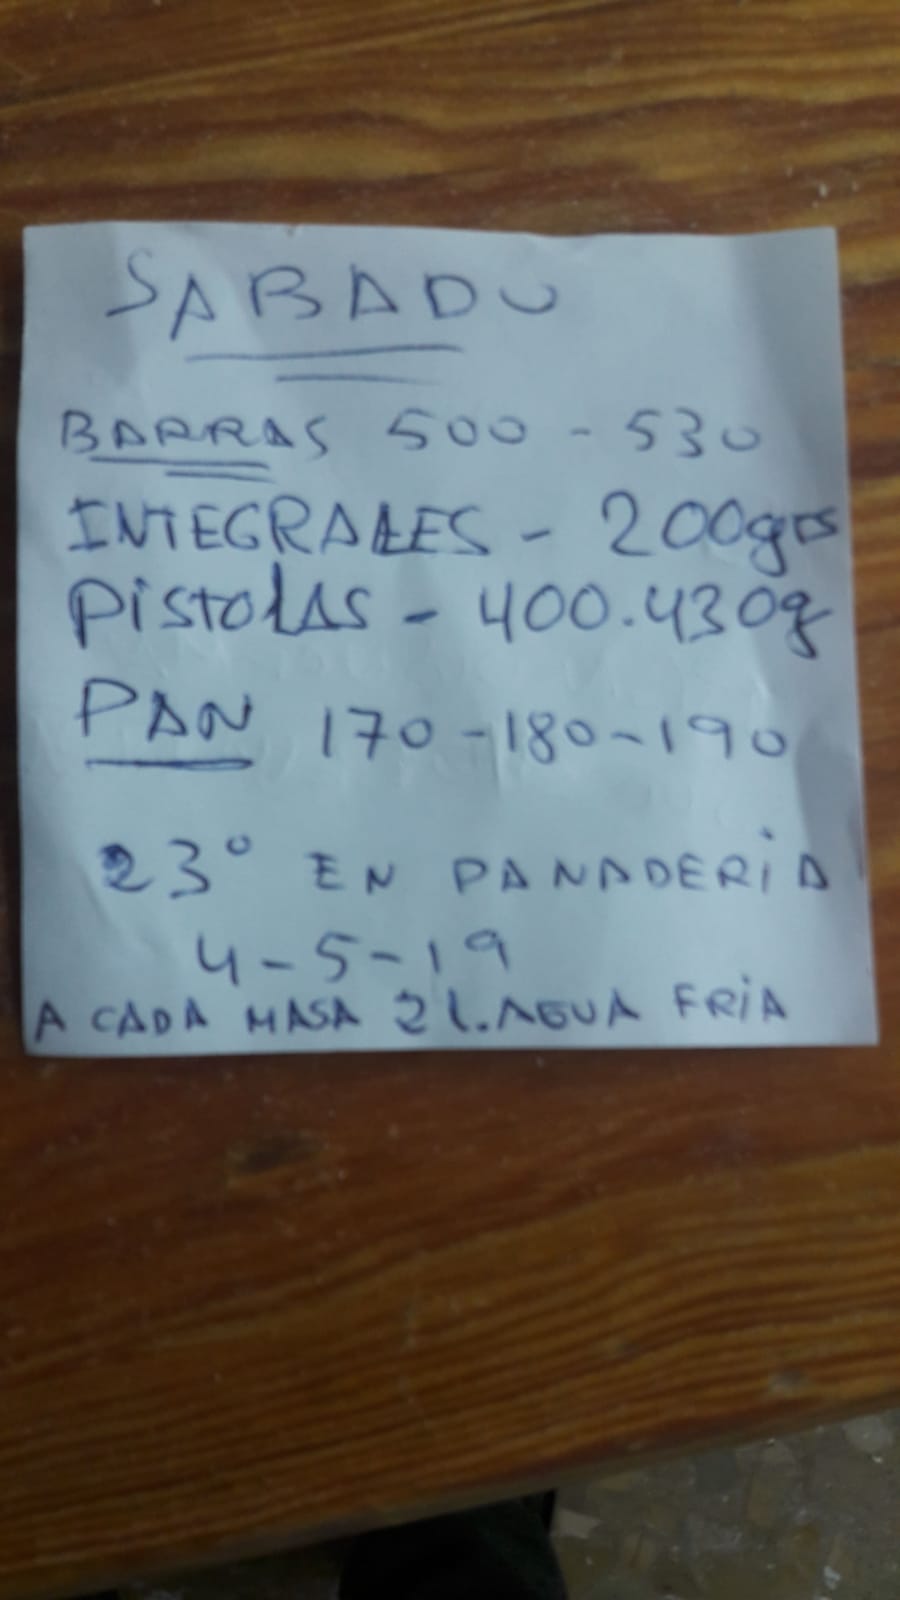 SABADO
BARRAS 500 - 530
INTEGRALES - 200grs
PistolAS - 400.430g
PAN 170 - 180 - 190
23º EN PANADERiA
4-5-19
A CADA MASA 2 l. AGUA FRiA